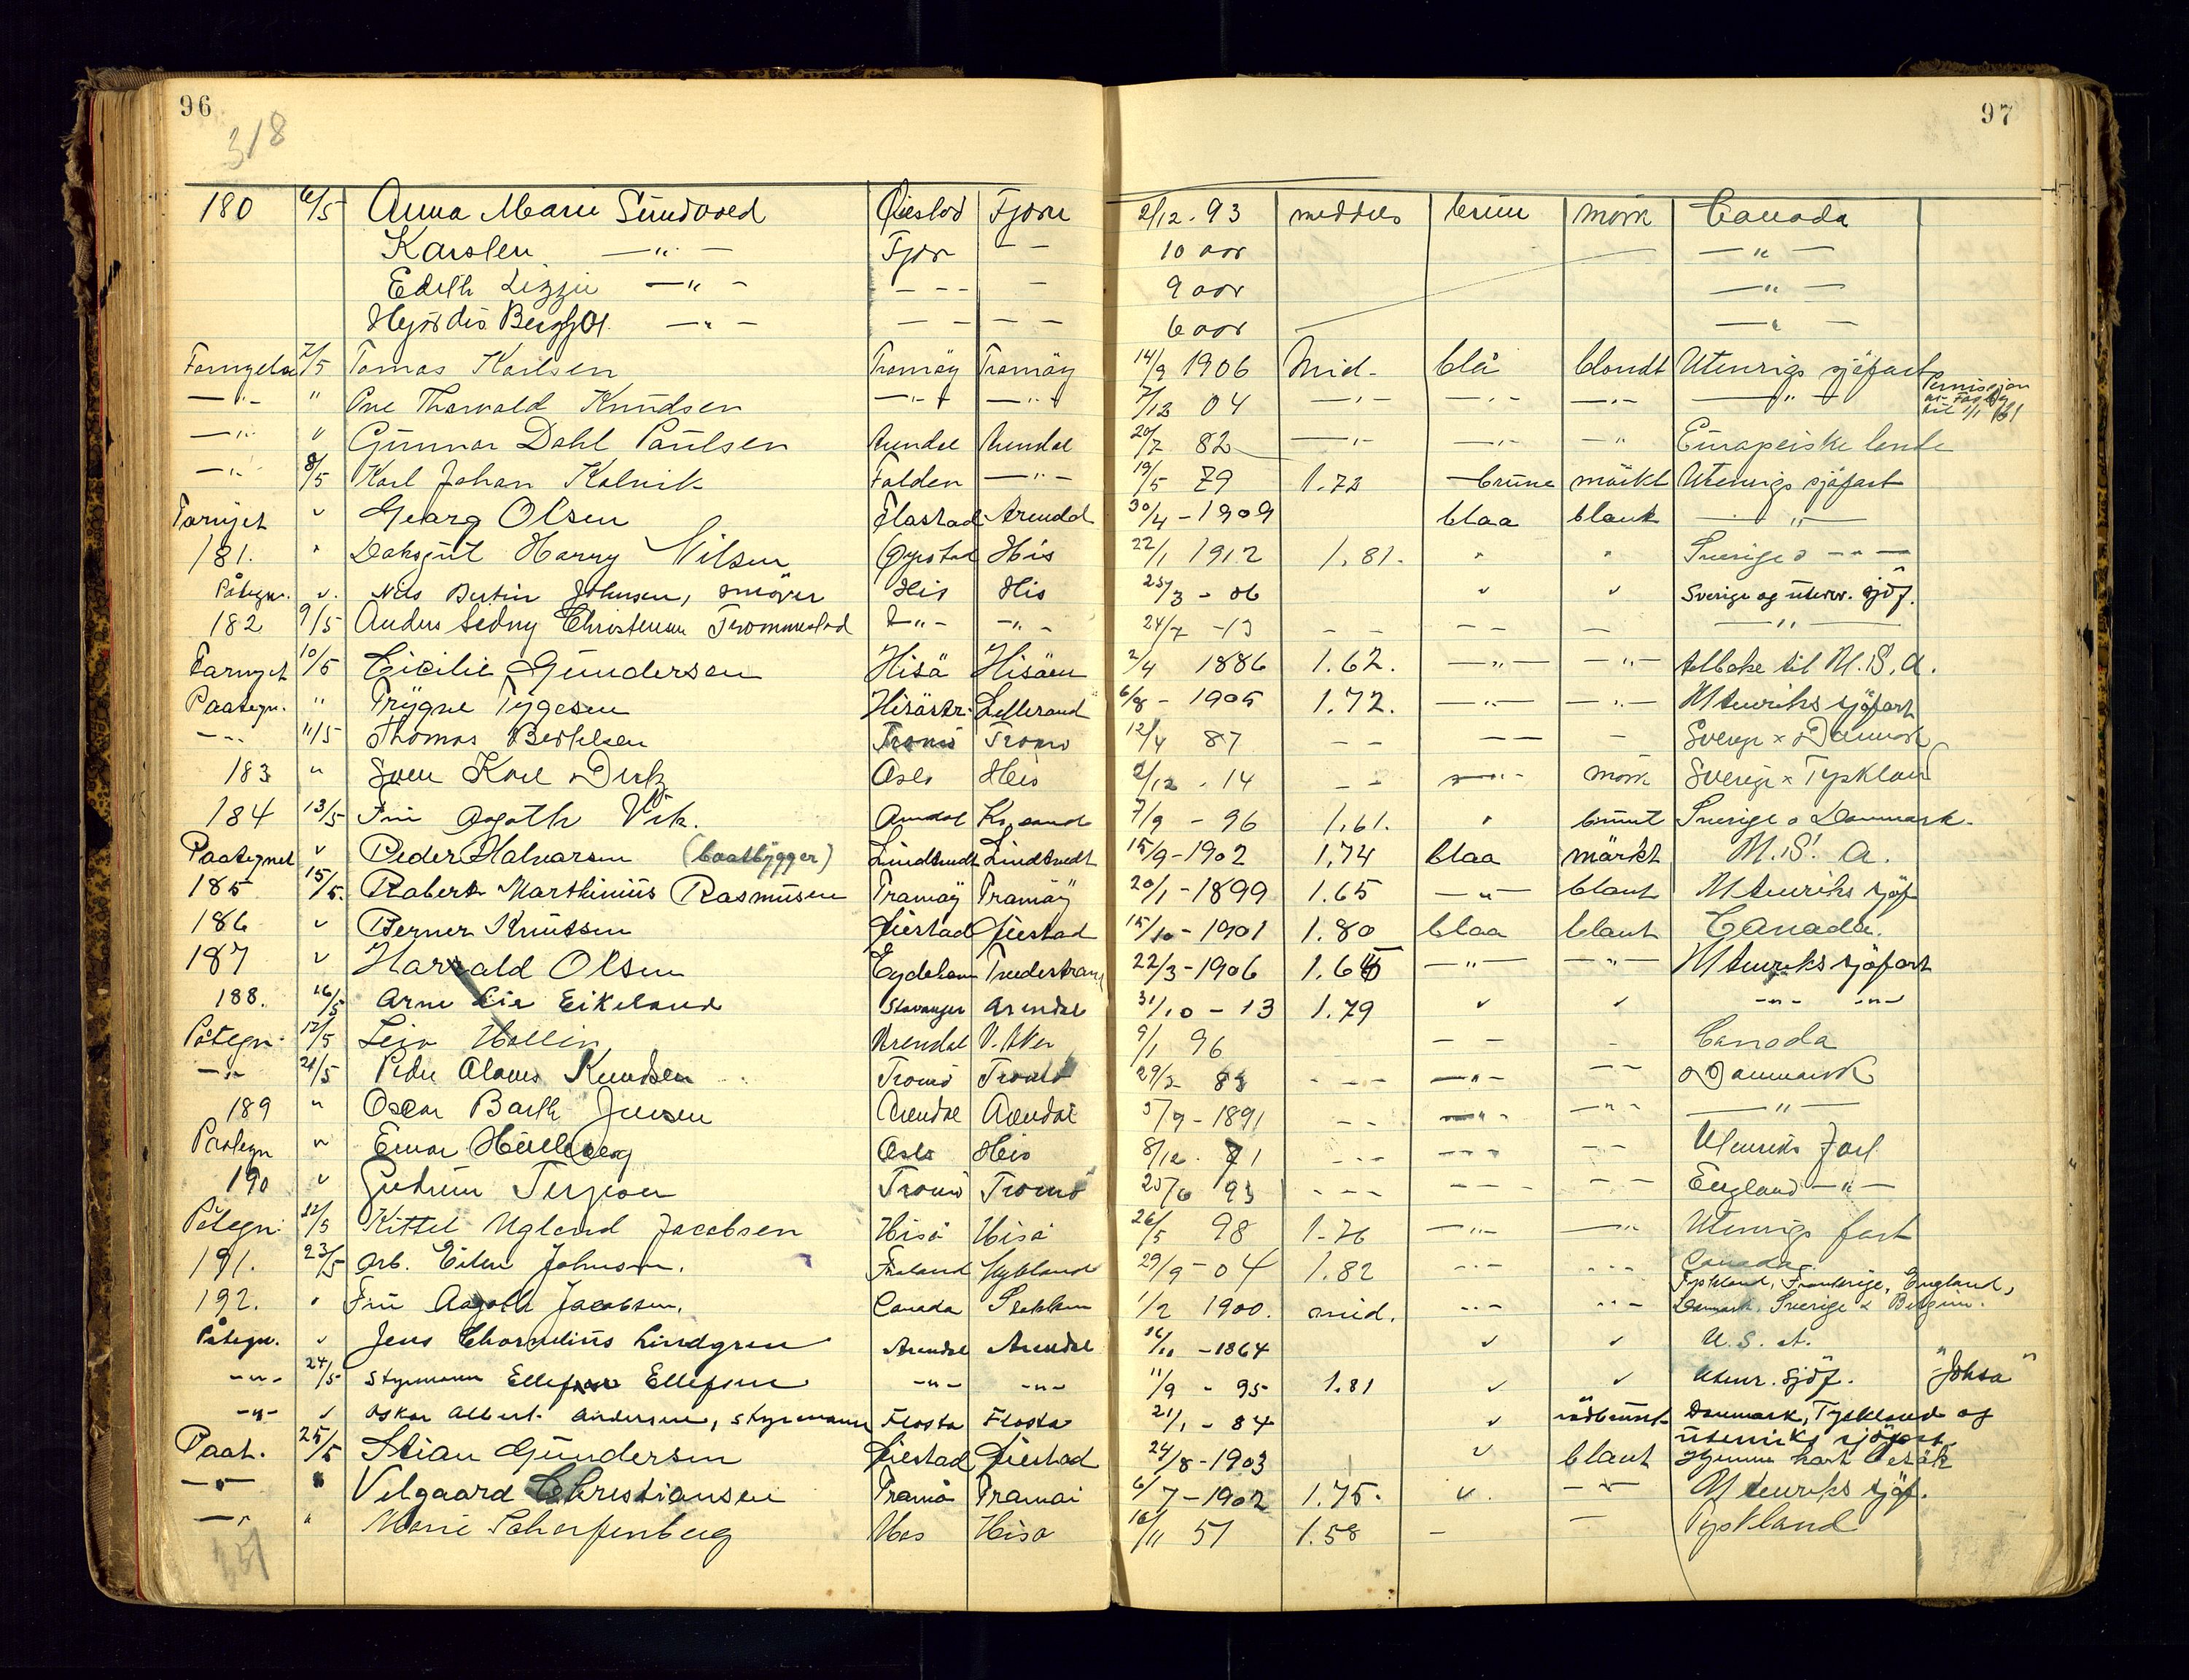 96
97
318
180 6/5 Anna Marie Sundvoed Øiestad Fjære 2/12. 93 middels brun mørk Canada
Karsten —"— Fjær — — 10 aar —"—
Edith Lizzie —"— — — — — 9 aar —"—
Hjørdis —"— — — — — 6 aar —"—
Fornyelse 7/5 Tomas Karlsen Tromöy Tromöy 14/9 1906 Mid- blå blondt Utenrigs sjöfart
—"— " Thorvald Knudsen —"— —"— 7/12 04 —"— —"— —"— —"— Permisjon til 1/1
—"— " Gunnar Dahl Paulsen Arendal Arendal 20/7 82 —"— —"— —" Europeiske lande
—"— 8/5 Karl Johan Kalnik Falden —"— 19/5 79 1.72 brune mörkt Utenrigs sjöfart
Fornyet " Georg Olsen Flostad Arendal 30/4 - 1909 blaa blont —"—
181. " Daksgut Harry Nilsen Øyestad His 22/1 1912 1.81. " " Sverige o — —
Påtegn. " Nils Bertin Johnsen, smører His His 25/3 - 06 " " Sverige og utenr. sjöf.
182 9/5 Anders Sidny Christensen Trommestad —"— —"— 24/7 -13 — — — — — —"—
Fornyet 10/5 Cicilie Gundersen Hisö Hisöen 2/4 1886 1.62. —"— —"— tilbake til U.S.A.
Paategn. " Trygve Tygesen Hisöstr. Lillesand 6/8 - 1905 1.72. —"— —"— Utenriks sjöfart
— — 11/5 Thomas Bertelsen Tromö Tromö 12/4 87 — — — — — Sverige x Danmark
183 " Sven Karl Dirks Oslo His 2/12 . 14 — — —"— mörk Sverige x Tyskland
184 13/5 Fru Agathe Vik. Arendal Kr.sand 7/9 - 96 1,61. " brunt Sverige o Danmark.
Paategnet " Peder Halvorsen (baatbygger) Lindtvedt Lindtvedt 15/9-1902 1,74 blaa mörkt U.S. A.
185 15/5. Robert Marthinius Rasmusen Tromöy Tromöy 20/1-1899 1.65 —"— blont Utenriks sjöf
186 " Berner Knutsen Øiestad Øiestad 15/10-1901 1.80 blaa blont Canada.
187 " Harald Olsen Eydehavn 22/3-1906 1.6 —"— —"— Utenriks sjöfart
188. 16/5 Arne Lie Eikeland Stavanger Arendal 31/10 - 13 1.79 " " —"— —"—
Påtegn. 12/5 Leiv Hollin Arendal V. Aker 9/1 96 — — — Canada
—"— 21/5 Peder Olaves Knudsen Tromö Tromö 29/3 83 — — — —"— — — Danmark
189 " Oscar Barth Jensen Arendal Arendal 5/9-1891 — — —"— —"— —"—
Paategn " Einar Hellberg Oslo His 8/12. 71 — — — — — — — — Utenriks fart
190 " Gudrun Terjesen Tromö Tromö 25/6 93 — — — — — — — — England —"—
Påtegn. 22/5 Kittil Ugland Jacobsen Hisö Hisö 26/5 98 1.76 —"— —"— Utenrigs fart
191. 23/5 Arb. Eilen Johnson. Froland Mykland 29/9-04 1.82 —"— —"— Canada.
192. " Fru Agath Jacobsen. Canada Stokken 1/2 1900. mid. —"— —"— Tyskland, Frankrige, England,
Danmark, Sverige & Belgien.
Påtegn. " Jens Chornelius Lindgren Arendal Arendal 16/11 -1864 " " U.S.A.
—"— 24/5 Styrmann Ellefsen —"— —"— 11/9 - 95 1.81 " " Utenr. sjöf. "Johsa"
—"— " Oskar Albert Andersen, styrmann Flosta Flosta 21/1 - 84 " rödbrunt Danmark, Tyskland og
utenriks sjöfart
Paat. 25/5 Stian Gundersen Øiestad Øiestad 24/8-1903 " blont Hjemme kort besök
—"— " Vilgaard Christiansen Tromö Tromöi 6/7-1902 1.75. " —"— Utenriks sjöf.
—"— " Marie Scharfenberg Mos Hisö 16/11 51 1.58 — — Tyskland